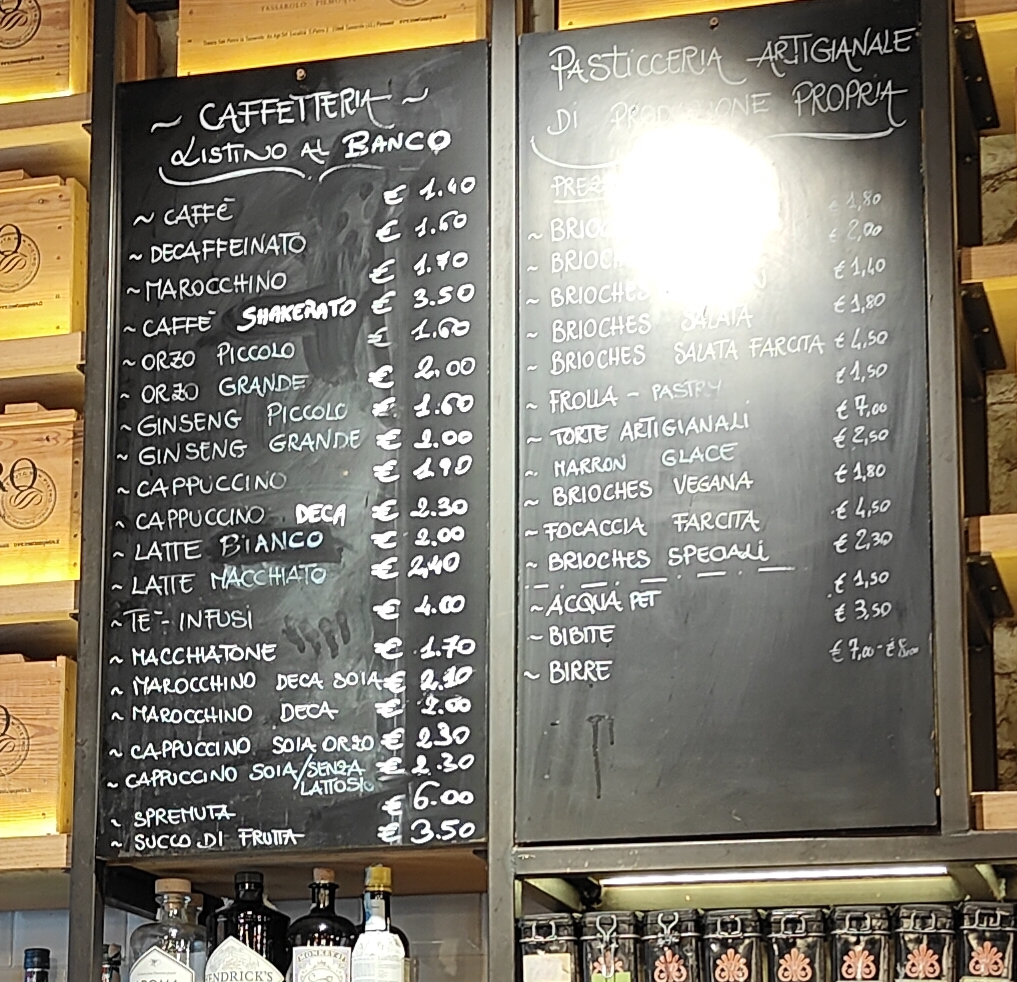 ~ CAFFETTERIA ~
LISTINO AL BANCO
~ CAFFÈ € 1.40
~ DECAFFEINATO € 1.60
~ MAROCCHINO € 1.70
~ CAFFÈ SHAKERATO € 3.50
~ ORZO PICCOLO € 1.60
~ ORZO GRANDE € 2.00
~ GINSENG PICCOLO € 1.60
~ GINSENG GRANDE € 2.00
~ CAPPUCCINO € 1.90
~ CAPPUCCINO DECA € 2.30
~ LATTE BIANCO € 2.00
~ LATTE MACCHIATO € 2,40
~ TE - INFUSI € 4.00
~ MACCHIATONE € 1.70
~ MAROCCHINO DECA SOIA € 2.10
~ MAROCCHINO DECA € 2.00
~ CAPPUCCINO SOIA ORZO € 2.30
~ CAPPUCCINO SOIA/SENZA € 2.30
LATTOSIO
~ SPREMUTA € 6.00
~ SUCCO DI FRUTTA € 3.50
PASTICCERIA ARTIGIANALE
DI PRODUZIONE PROPRIA
€ 1,80
~ € 2,00
~ € 1,40
~ BRIOCHES € 1,80
~ BRIOCHES SALATA
~ BRIOCHES SALATA FARCITA € 4,50
~ FROLLA - PASTRY € 1,50
~ TORTE ARTIGIANALI € 7,00
~ MARRON GLACE € 2,50
~ BRIOCHES VEGANA € 1,80
~ FOCACCIA FARCITA € 4,50
~ BRIOCHES SPECIALI € 2,30
~ ACQUA PET € 1,50
~ BIBITE € 3,50
~ BIRRE € 7,00 - € 8,00
HENDRICK'S